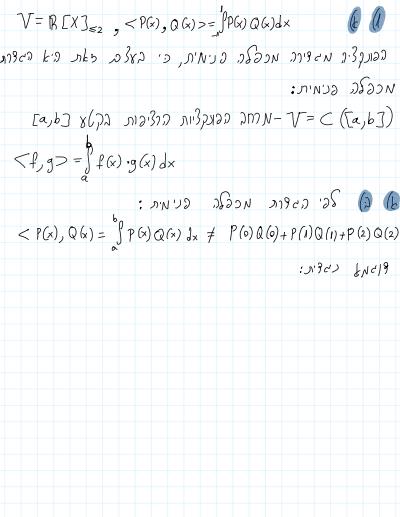 1) א) V = ℝ[X]≤2 , <P(x), Q(x)> = ∫P(x)Q(x)dx
הפונקציה מגדירה מכפלה פנימית, כי בעצם זאת היא הגדרת
מכפלה פנימית:
V = C([a,b]) - מרחב הפונקציות הרציפות בקטע [a,b]
<f,g> = ∫ₐᵇ f(x)·g(x)dx
1) ב) לפי הגדרת מכפלה פנימית:
<P(x), Q(x) = ∫ₐᵇ P(x)Q(x)dx ≠ P(0)Q(0)+P(1)Q(1)+P(2)Q(2)
נגדית: